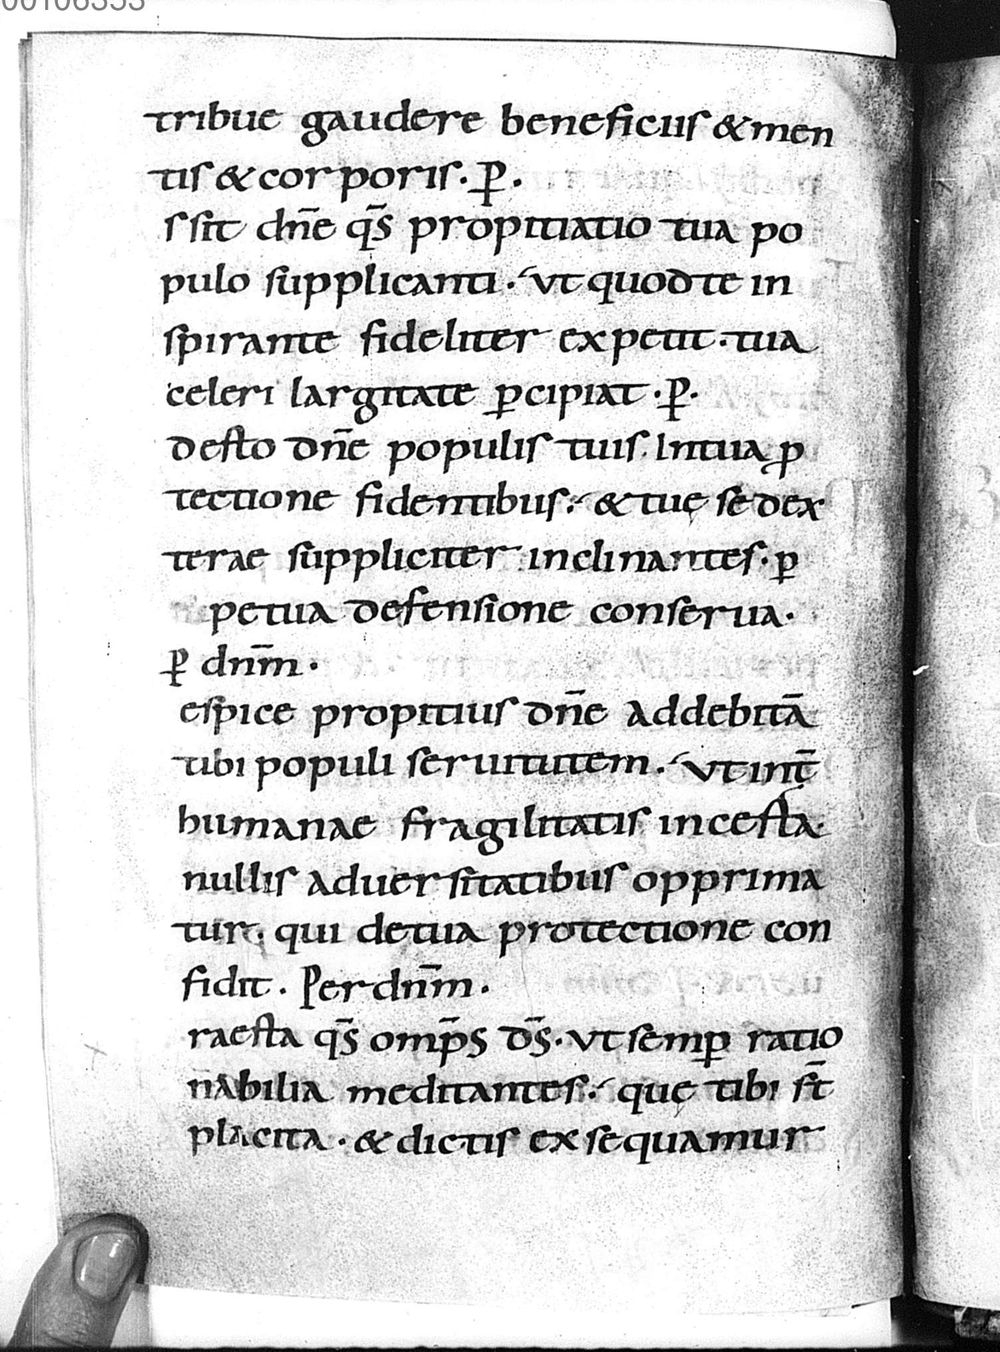 00106353
tribue gaudere beneficiis & men
tis & corporis. P̄.
ssit dn̄e qs̄ propitiatio tua po
pulo supplicanti. ut quod te in
spirante fideliter expetit. tua
celeri largitate ꝑcipiat. P̄.
desto dn̄e populis tuis. In tua ꝑ
tectione fidentibus. & tuę se dex
terae suppliciter inclinantes. ꝑ
petua defensione conserua.
P̄ dnm̄.
espice propitius dn̄e ad debitā
tibi populi seruitutem. ut int̄
humanae fragilitatis incesta.
nullis aduersitatibus opprima
tur. qui de tua protectione con
fidit. Per dnm̄.
raesta qs̄ omp̄s ds̄. ut semꝑ ratio
nabilia meditantes. quę tibi st̄
placita. & dictis exsequamur